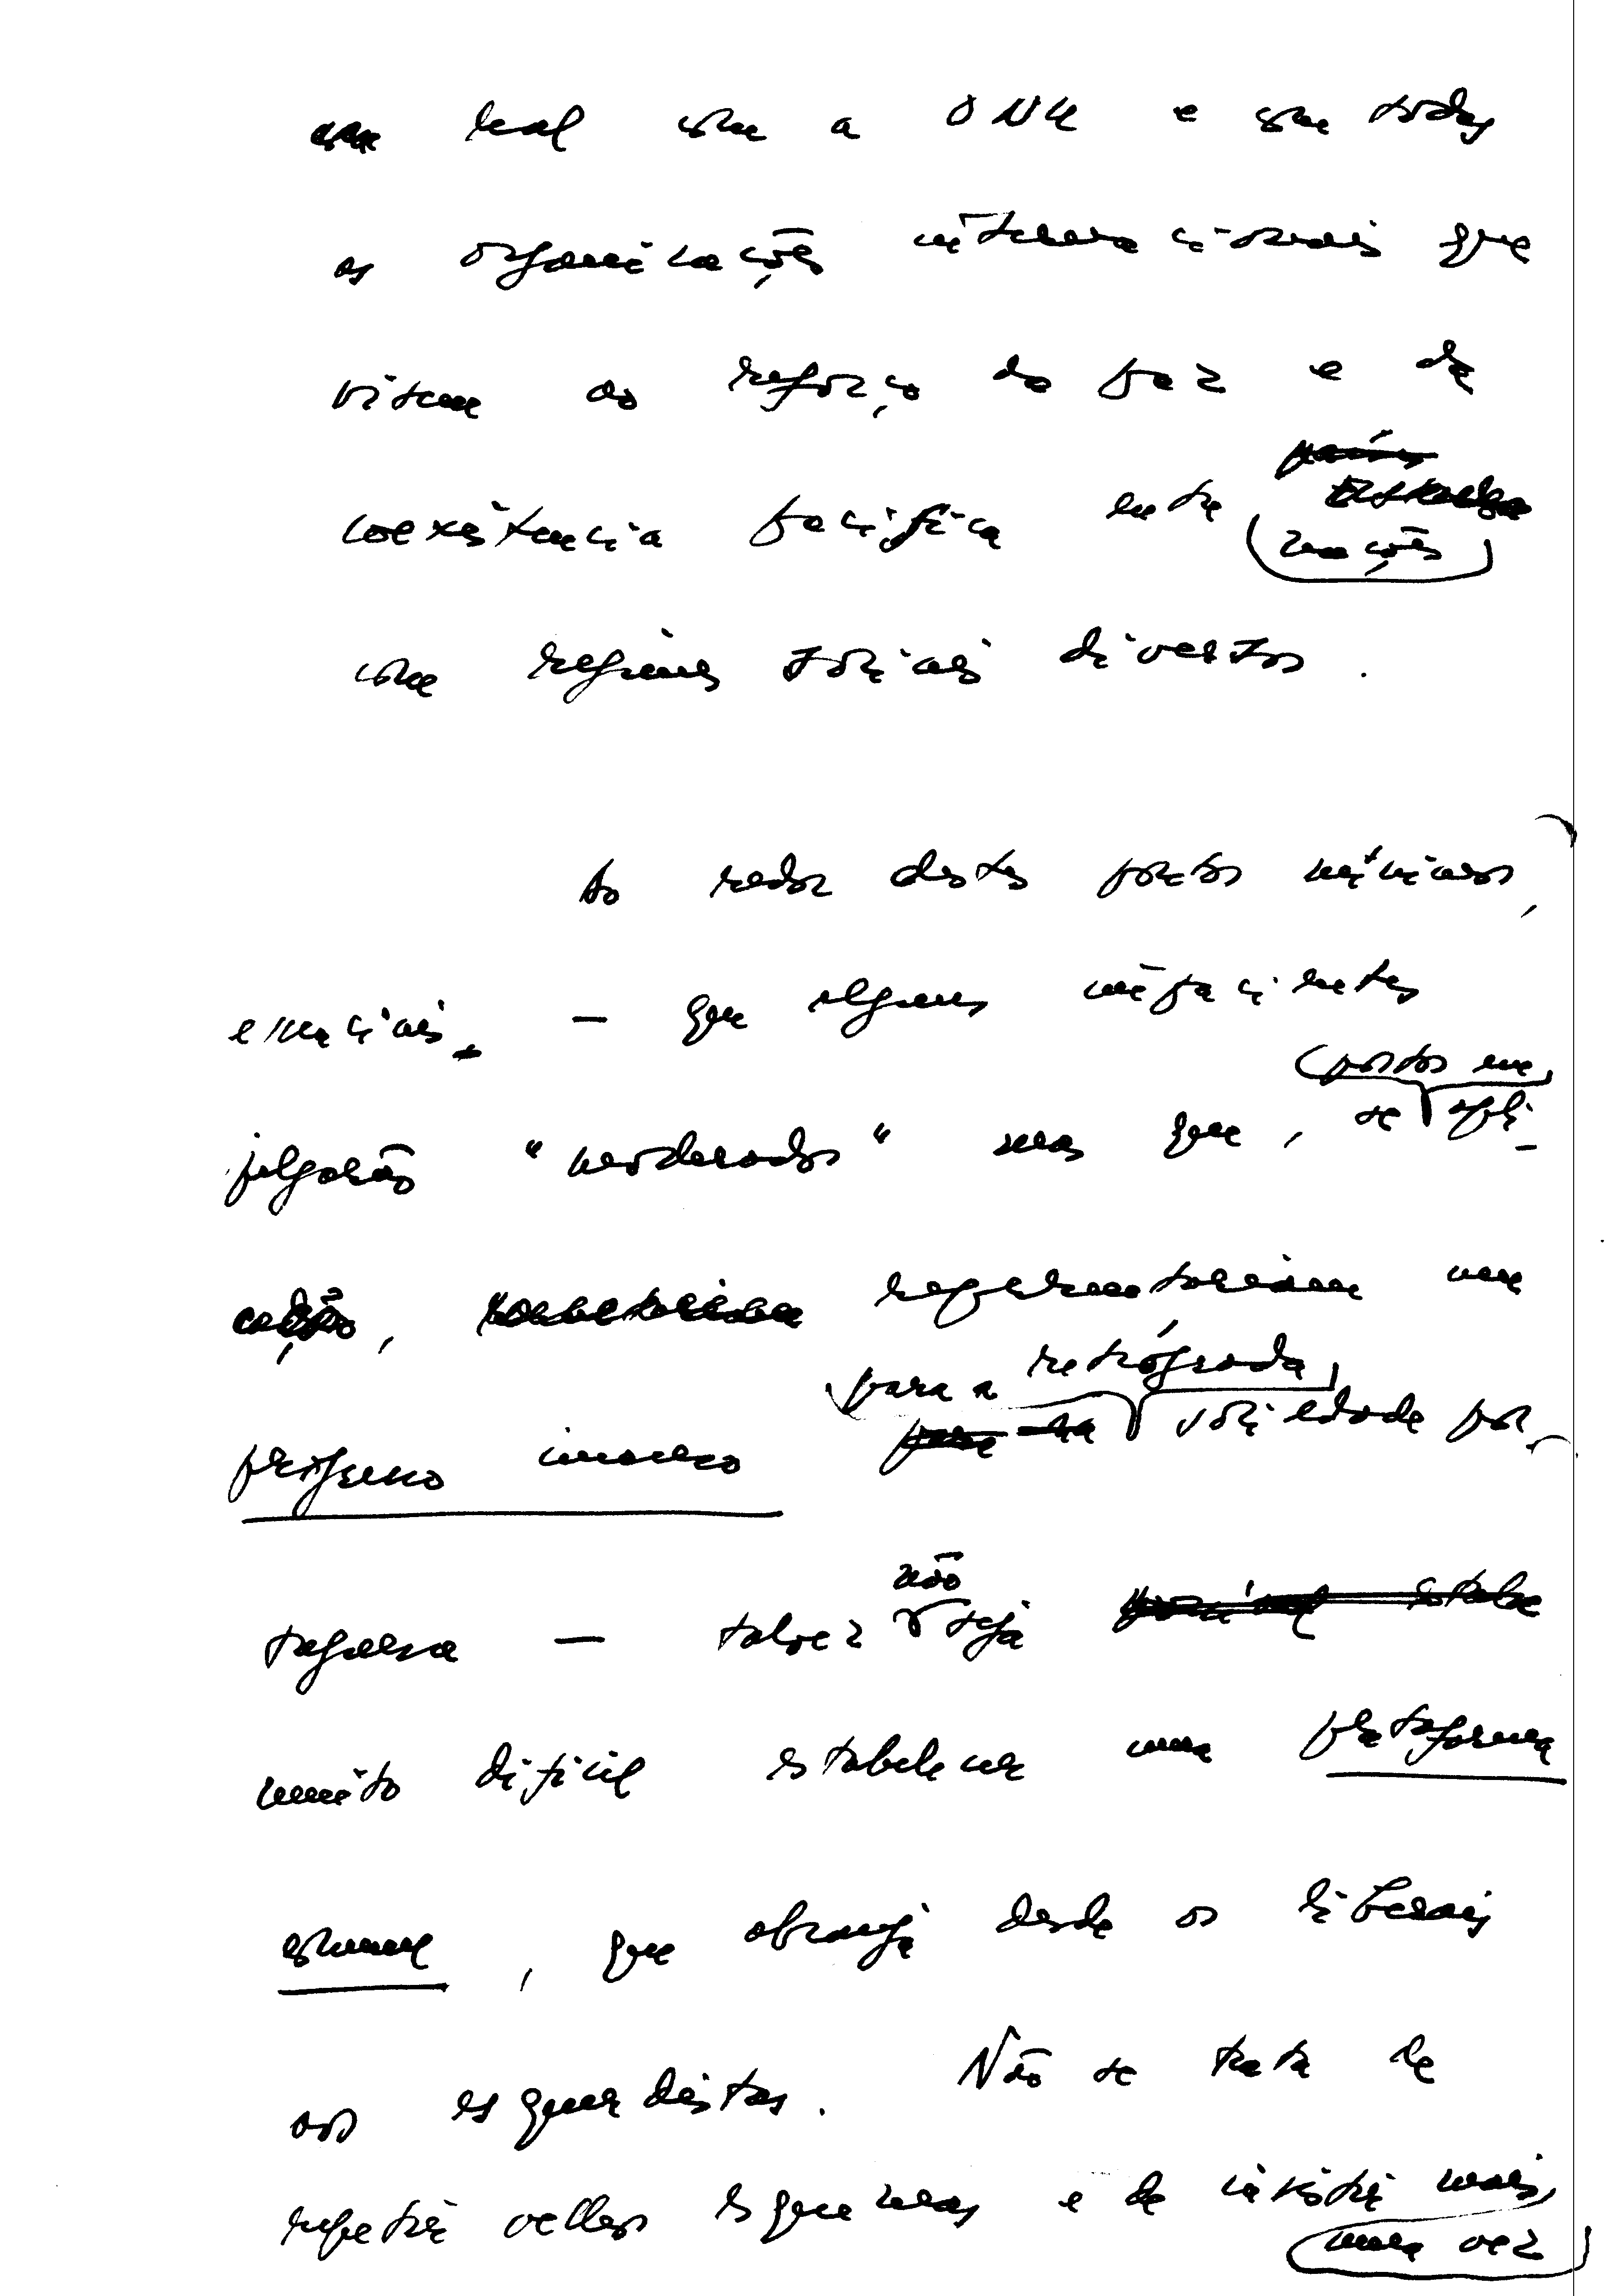 leal com a ONU e com todas
as organizações internacionais que
visem ao reforço da paz e da
países
coexistência pacífica entre
nações
com regimes sociais diversos.
Ao redor destes pontos mínimos,
essenciais — que alguns impacientes
postos em
julgarão "moderados" mas que, se apli-
cação, representariam um
para a retrógrada
progresso imenso sociedade por-
tuguesa — talvez não seja
muito difícil estabelecer uma plataforma
comum, que abranja desde os liberais
aos esquerdistas. Não se trata de
repetir velhos esquemas e de insistir mais
uma vez